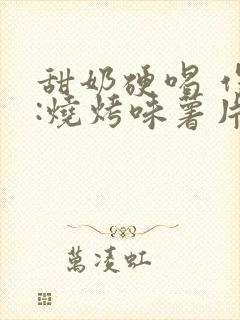 甜奶硬唱
:燒烤味薯片
萬淩虹